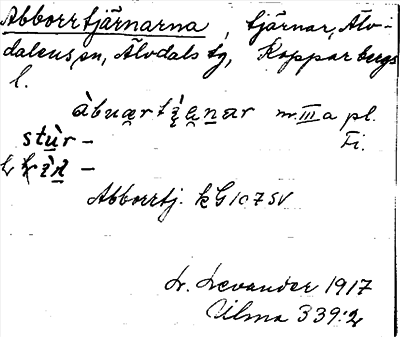 Abborrtjärnarna, tjärnar, Älv-
dalens sn, Älvdals tg, Kopparbergs
l.
àbuærtʒ̀ænær m III a pl.
stùr – Fi.
–
Abborrtj. kG 1075V
L. Levander 1917
Ulma 339:2